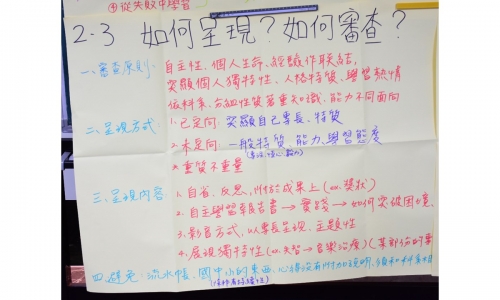 ④從失敗中學習
2-3 如何呈現?如何審查?
一、審查原則: 自主性、個人生命、經驗作聯結,
突顯個人獨特性、人格特質、學習熱情
依科系、分組性質著重知識、能力不同面向
二、呈現方式: 1.已定向: 突顯自己專長、特質
2.未定向: 一般特質、能力、學習態度
*重質不重量
三、呈現內容 1.自省、反思,附於成果上(ex.獎狀)
2.自主學習報告書→實踐→如何突破困境、
3.影音方式,以專長呈現、主題性
4.展現獨特性(ex.失智→音樂治療)(某部份的事
四、避免: 流水帳、國中小的東西、心得沒有附加說明、須和科系相